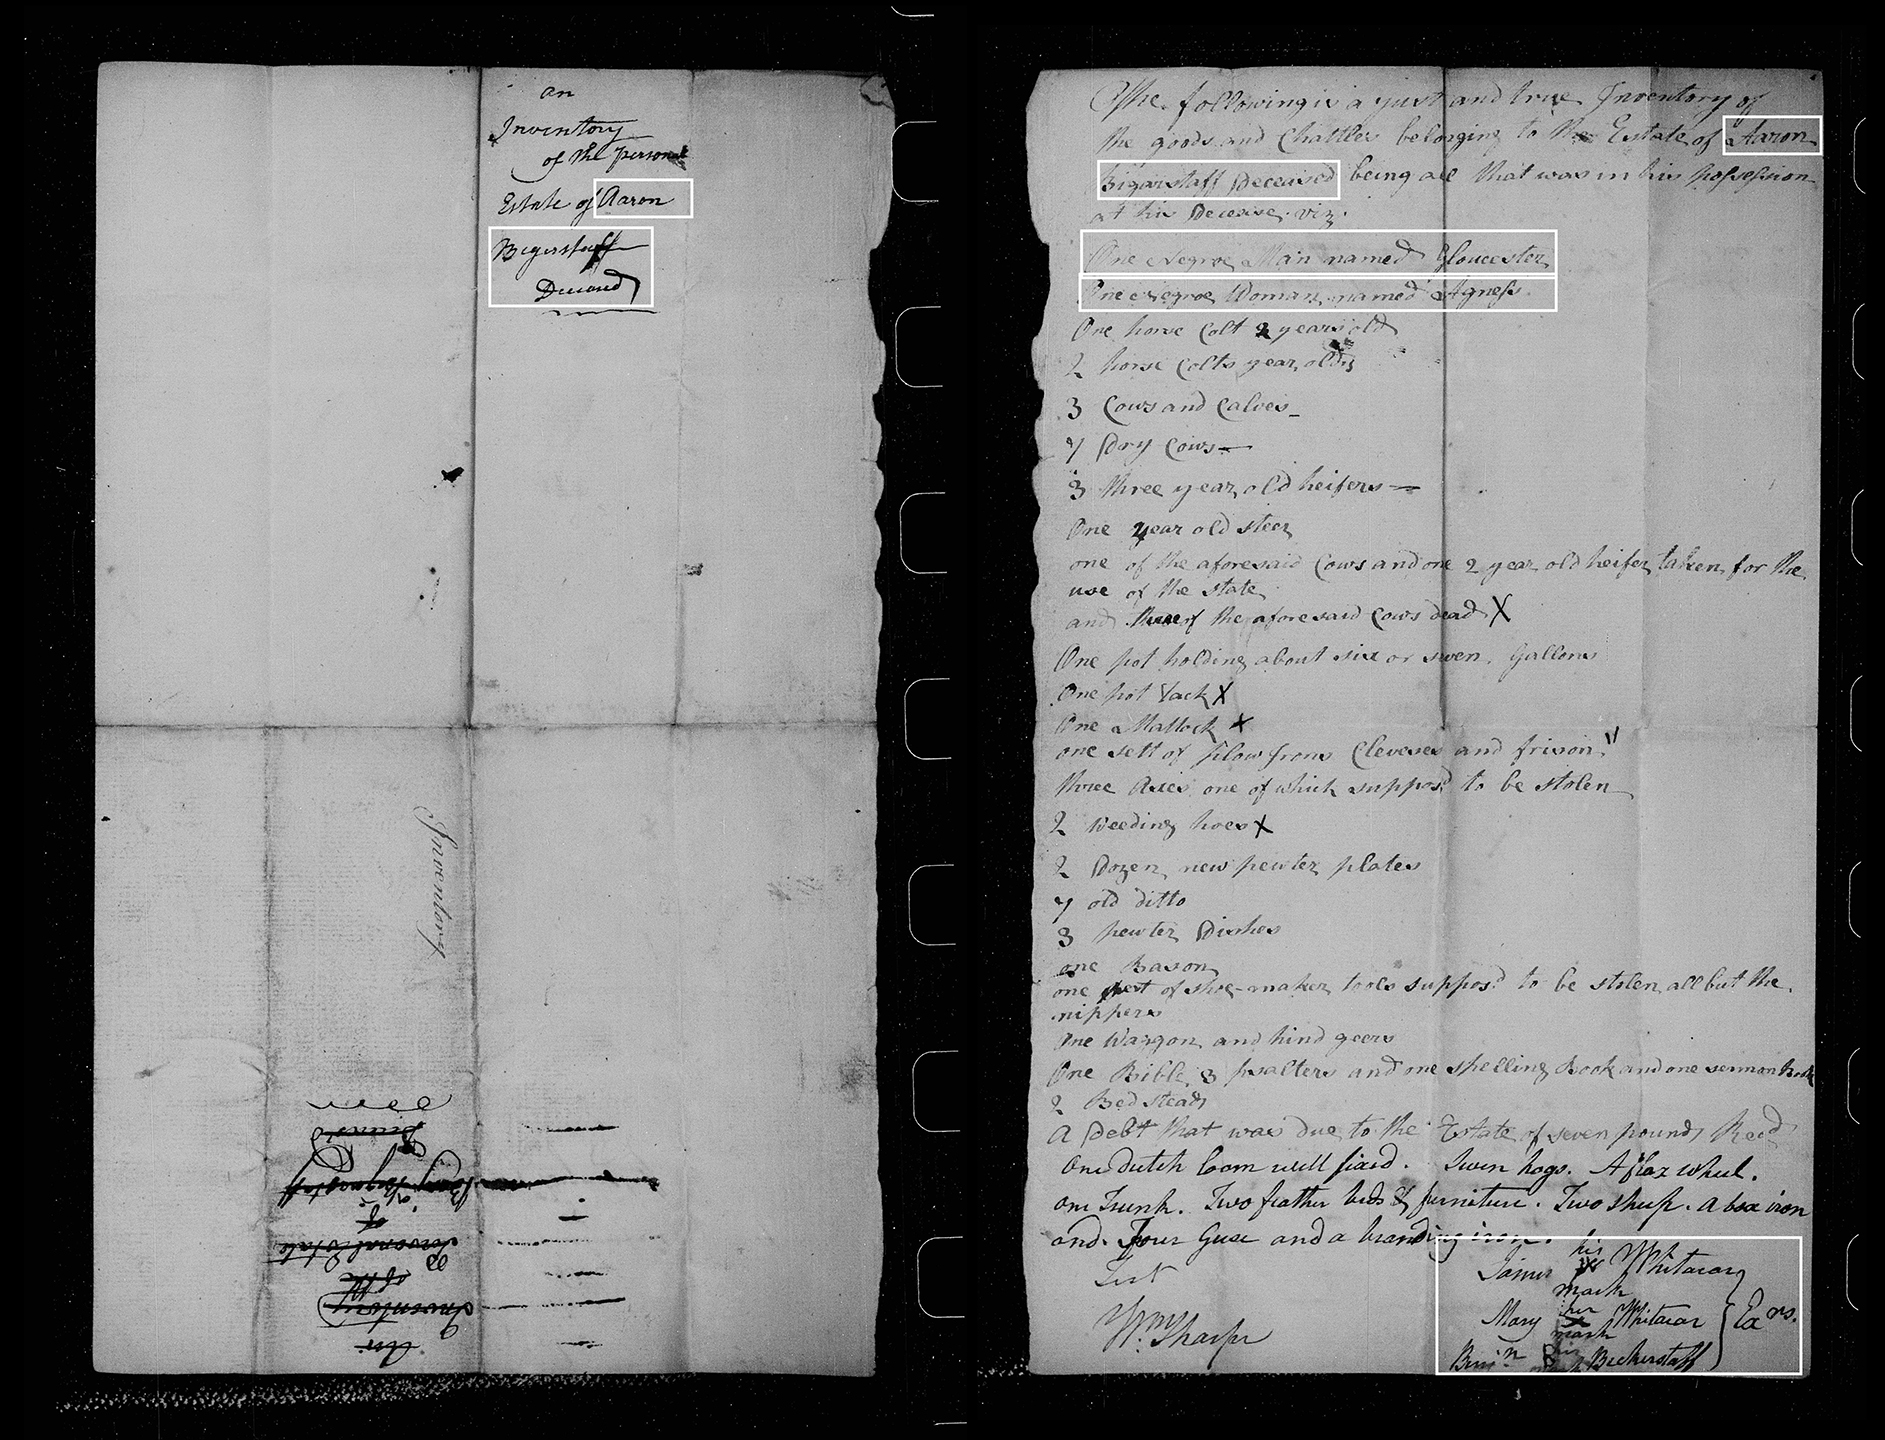 an
Inventory
of the personal
Estate of Aaron
Begerstaff
Deceased
Inventory
An
Inventory
of the
Personal Estate
of
Deceas'd
The following is a just and true Inventory of
the goods and Chattles belonging to the Estate of Aaron
Bigarstaff Deceased being all that was in his possession
at his Decease. viz.
One Negroe Man named Gloucester
One Negroe Woman named Agness
One horse Colt 2 years old
2 horse Colts year olds
3 Cows and Calves
7 Dry Cows
3 three year old heifers
One year old steer
one of the aforesaid Cows and one 2 year old heifer taken for the
use of the state
and three of the aforesaid Cows dead X
One pot holding about six or seven Gallons
One pot rack X
One Mattock X
one sett of plow Irons Cleveses and frison "
three Axes one of which suppos'd to be stolen
2 Weeding hoes X
2 Dozen new pewter plates
7 old ditto
3 pewter Dishes
one Bason
one of shoe-maker tools suppos'd to be stolen all but the
nippers
One Waggon and hind geers
One Bible 3 psalters and one spelling Book and one sermon Book
2 Bed steads
A Debt that was due to the Estate of seven pounds Recd
One dutch loom well fixed. Seven hogs. A flax wheel.
one Trunk. Two feather beds & furniture. Two sheep. A box iron
and. Four Geese and a branding iron.
Test
his
James X Whitacar
mark
her
Mary X Whitacar } Exrs.
mark
Wm. Sharpe
his
Benjn. B Beckerstaff
mark